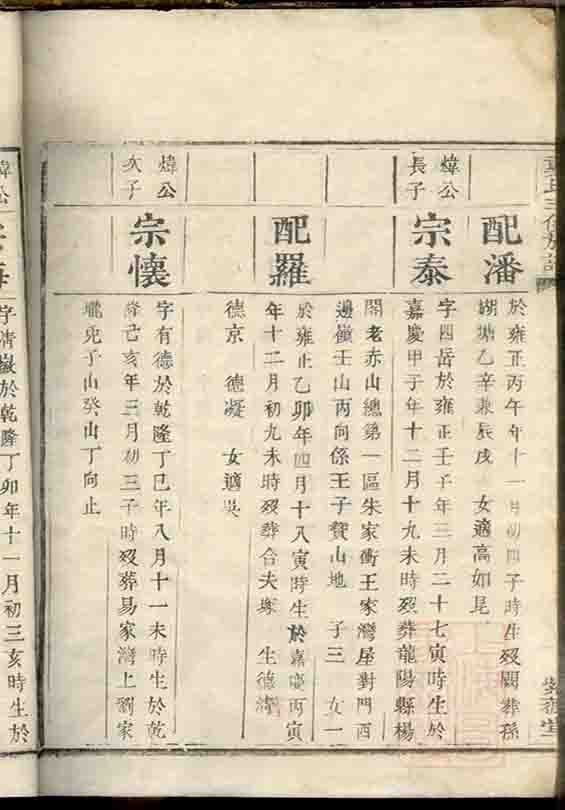 配潘
於雍正丙午年十一月初四子時生歿閼葬孫
湖塘乙辛兼辰戌 女適高如昆
煒公
長子
宗泰
字四岳於雍正壬子年三月二十七寅時生於
嘉慶甲子年十二月十九未時歿葬龍陽縣楊
閣老赤山總第一區朱家衝王家灣屋對門西
邊嶺壬山丙向係王子贊山地 子三 女一
配羅
於雍正乙卯年四月十八寅時生於嘉慶丙寅
年十二月初九未時歿葬合夫塚 生德
德京 德凝 女適吳
煒公
次子
宗懷
字有德於乾隆丁巳年八月十一未時生於乾
隆己亥年三月初三子時歿葬易家灣上劉家
壠兜子山癸山丁向止
煒公
字清嶽於乾隆丁卯年十一月初三亥時生於